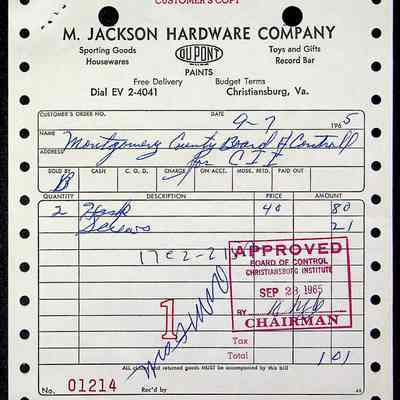 CUSTOMER'S COPY
M. JACKSON HARDWARE COMPANY
Sporting Goods DU PONT Toys and Gifts
Housewares PAINTS Record Bar
Free Delivery Budget Terms
Dial EV 2-4041 Christiansburg, Va.
CUSTOMER'S ORDER NO. DATE 9-7 1965
NAME Montgomery County Board of Controll
ADDRESS for C I I
SOLD BY CASH C. O. D. CHARGE ON ACCT. MDSE. RETD. PAID OUT
QUANTITY DESCRIPTION PRICE AMOUNT
2 Hasp 40 80
Screws 21
17C2-21
APPROVED
BOARD OF CONTROL
CHRISTIANSBURG INSTITUTE
SEP 23 1965
BY
CHAIRMAN
1
Tax
Total 1 01
ALL claims and returned goods MUST be accompanied by this bill
No. 01214 Rec'd by